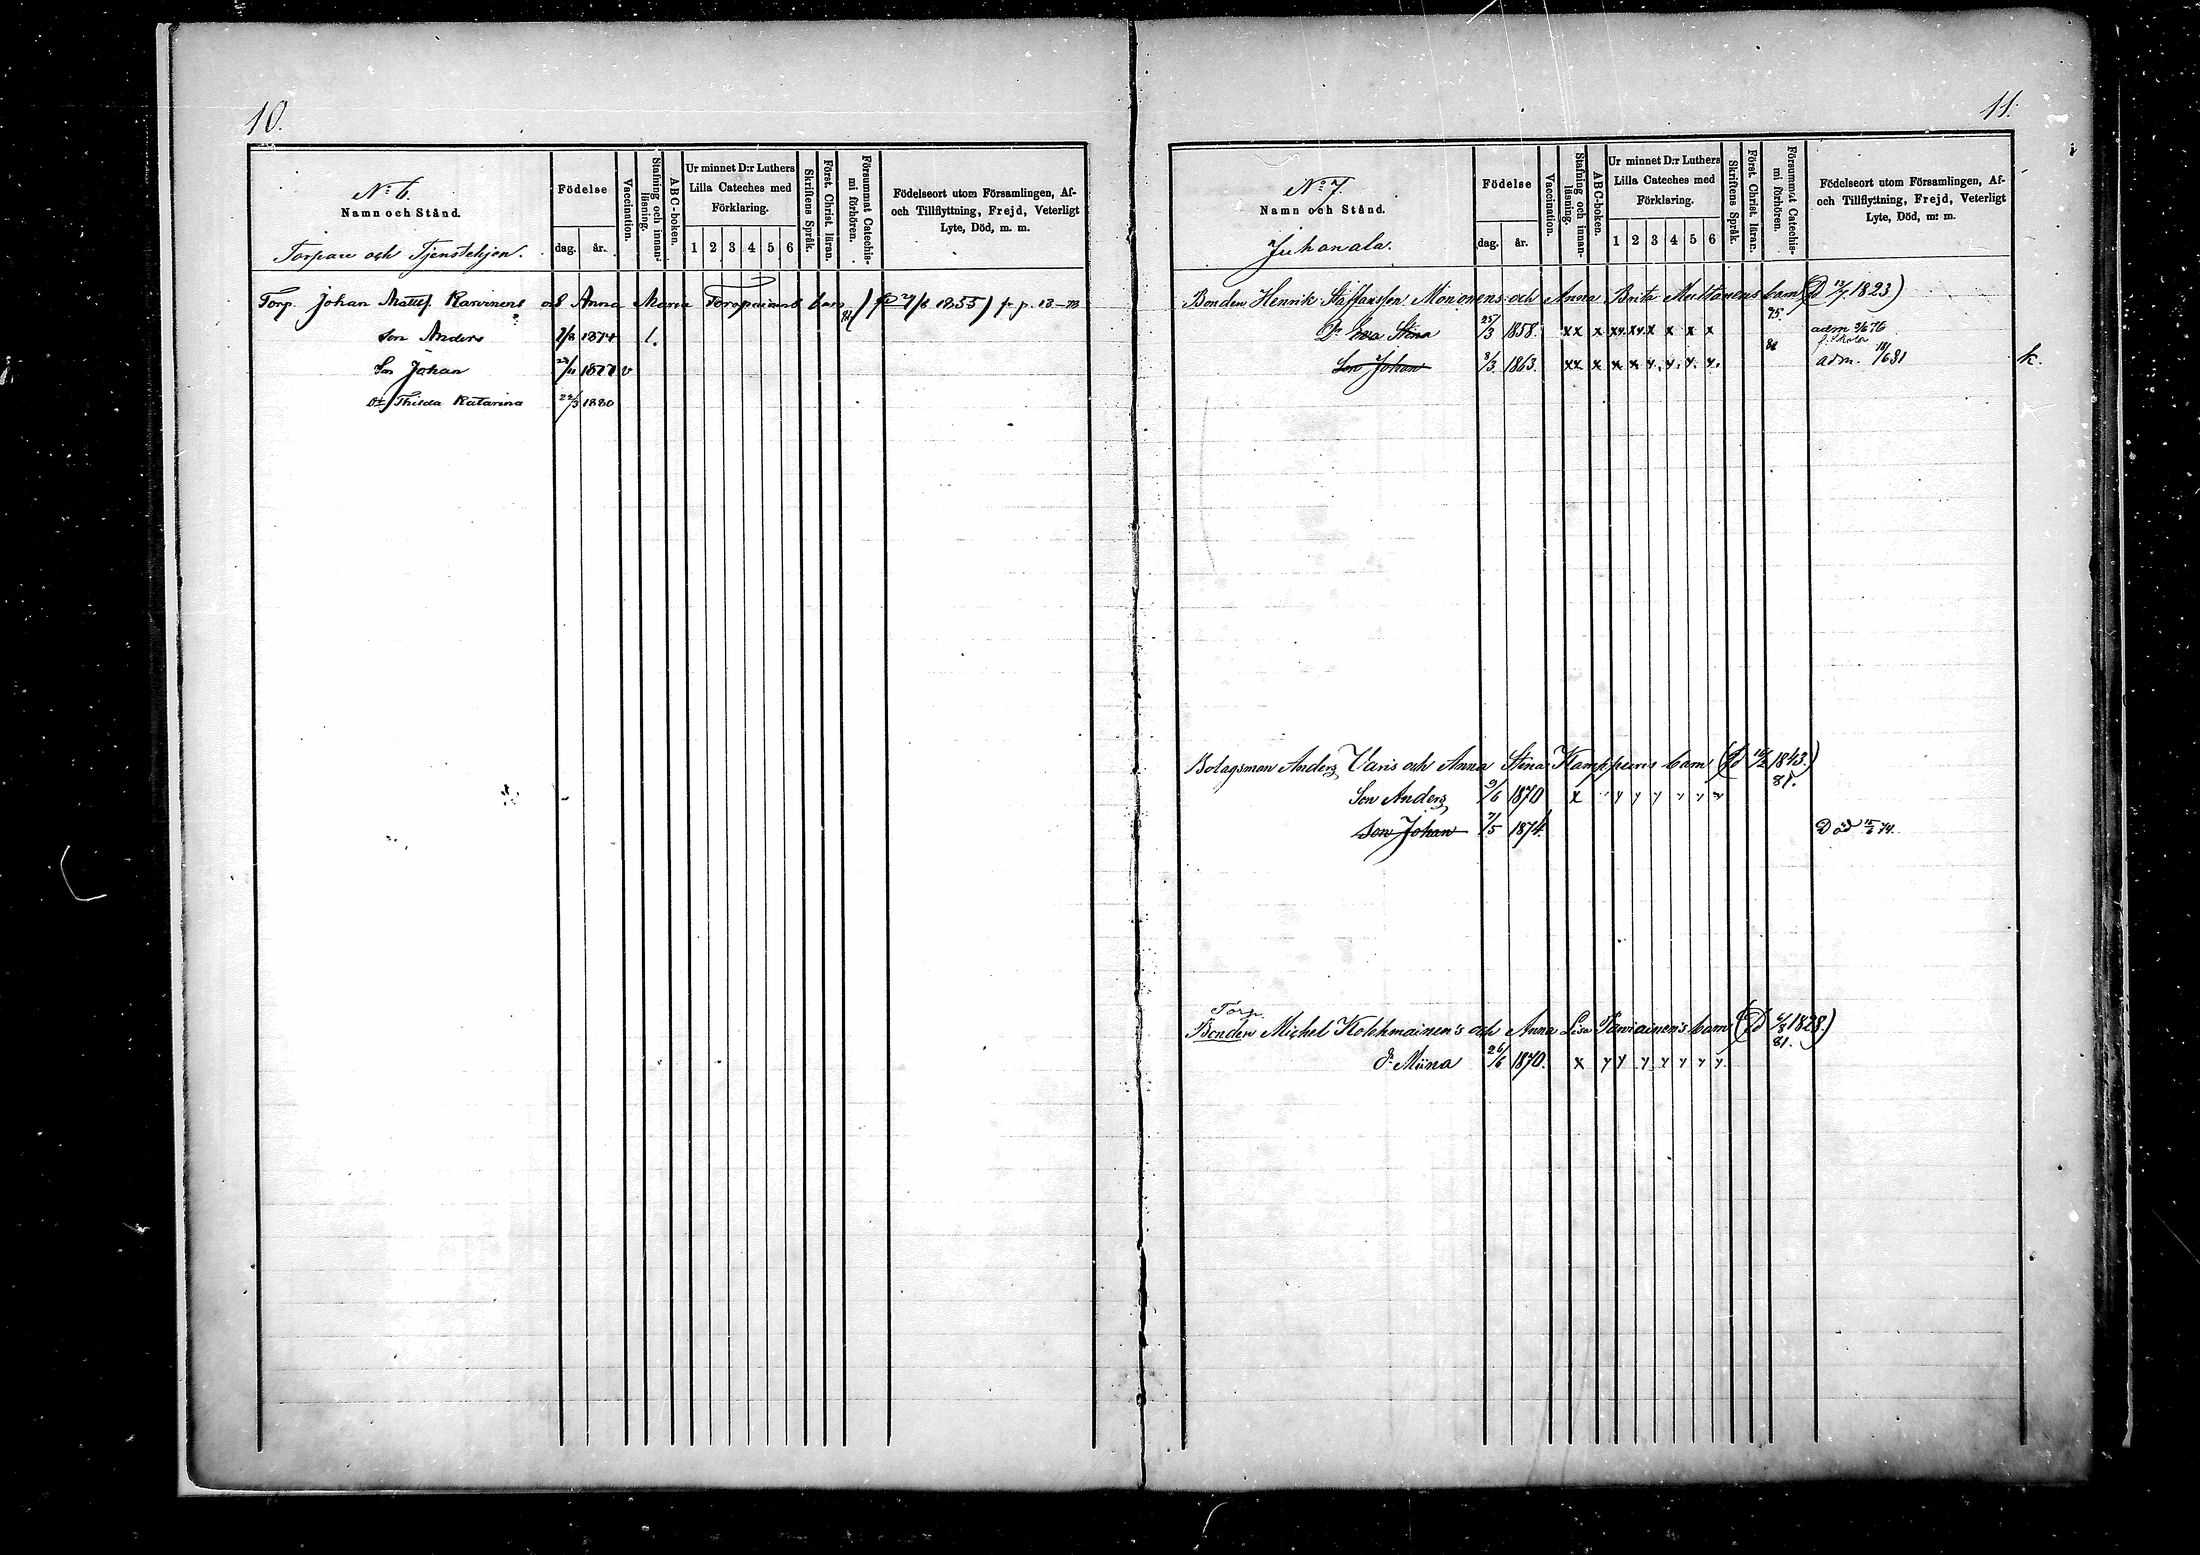 10.
No 6.
Namn och Stånd.
Torpare och Tjenstehjon.
Födelse
dag. år.
Vaccination.
Stafning och innanläsning.
A B C-boken.
Ur minnet D:r Luthers
Lilla Cateches med
Förklaring.
1 2 3 4 5 6
Skriftens Språk.
Först. Christ. läran.
Försummat Catechismi förhören.
Födelseort utom Församlingen, Af-
och Tillflyttning, Frejd, Veterligt
Lyte, Död, m. m.
Torp. Johan Mattsf. Karvinens och Anna Maria Toropainens barn (fd 1855) fr. p. 13-78
Son Anders 1874 1.
Son Johan 1877 v
Dr Thilda Katarina 22/3 1880
11.
No 7.
Namn och Stånd.
Juhanala.
Födelse
dag. år.
Vaccination.
Stafning och innanläsning.
A B C-boken.
Ur minnet D:r Luthers
Lilla Cateches med
Förklaring.
1 2 3 4 5 6
Skriftens Språk.
Först. Christ. läran.
Försummat Catechismi förhören.
Födelseort utom Församlingen, Af-
och Tillflyttning, Frejd, Veterligt
Lyte, Död, m. m.
Bonden Henrik Staffansson Mononens och Anna Brita Multanens barn (fd 12/7 1823)
75.
Dr Eva Stina 25/3 1858. xx x x x x x x x adm 76
Son Johan 3/3 1863. xx x x x y. y. y. y. adm. 18/6 81 k.
Bolagsman Anders Varis och Anna Stina Kamppurs barn (fd 16/2 1843.)
81.
Son Anders 9/6 1870 x y y y y y y
Son Johan 7/5 1874. Död 15/6 74.
Torp.
Bonden Michel Kolehmainen's och Anna Lisa Parviainen's barn (fd 6/8 1828.)
81.
d. Miina 26/6 1870. x y y y y y y y.